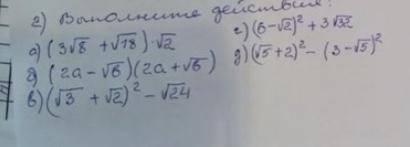 2) Выполните действия:
а) (3√8 + √18)·√2
б) (2a − √6)(2a + √6)
в) (√3 + √2)² − √24
г) (6 − √2)² + 3√32
д) (√5 + 2)² − (3 − √5)²